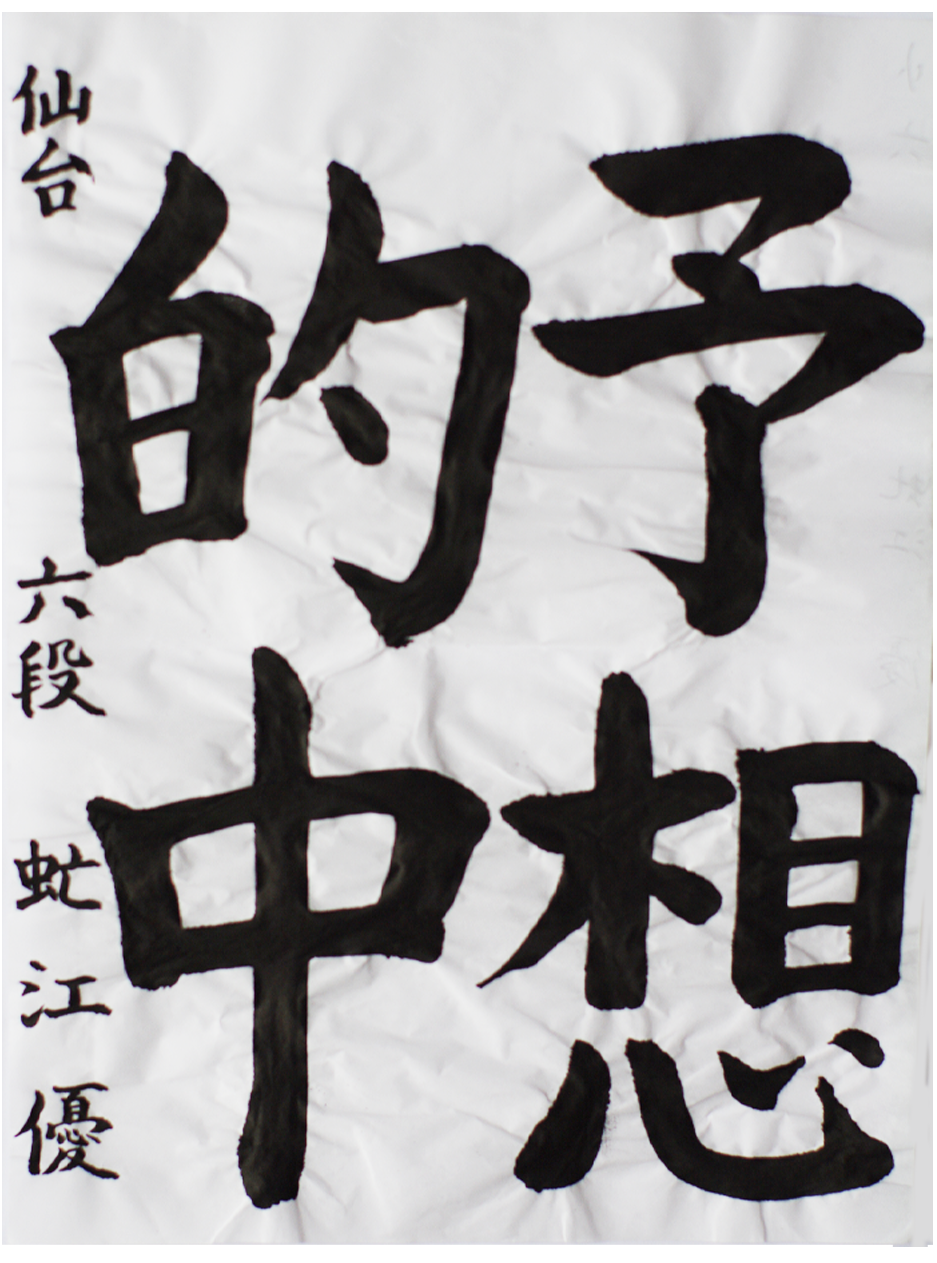 予想
的中
仙台 六段 虻江優